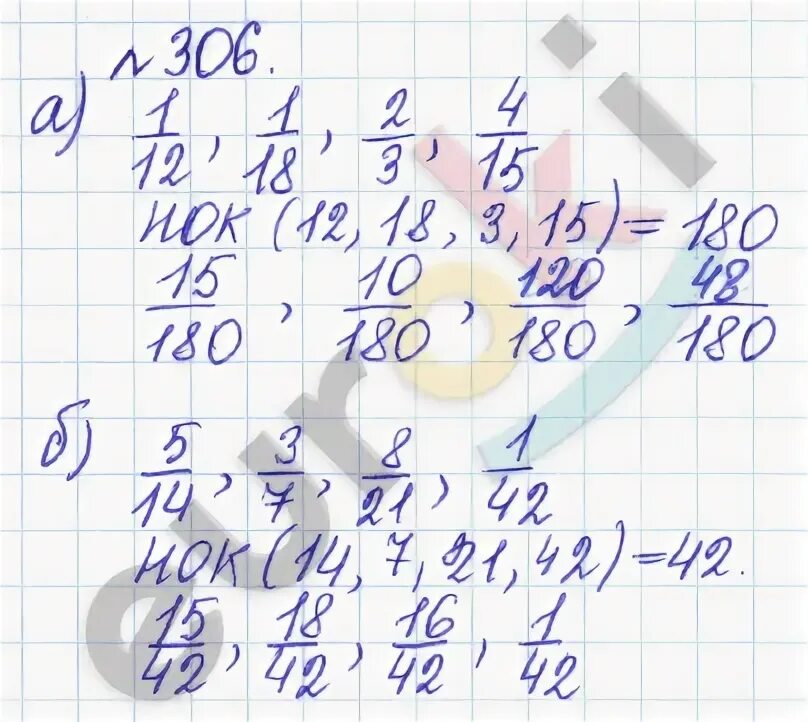 №306.
а) 1/12, 1/18, 2/3, 4/15
НОК (12, 18, 3, 15) = 180
15/180, 10/180, 120/180, 48/180
б) 5/14, 3/7, 8/21, 1/42
НОК (14, 7, 21, 42) = 42.
15/42, 18/42, 16/42, 1/42
euroki